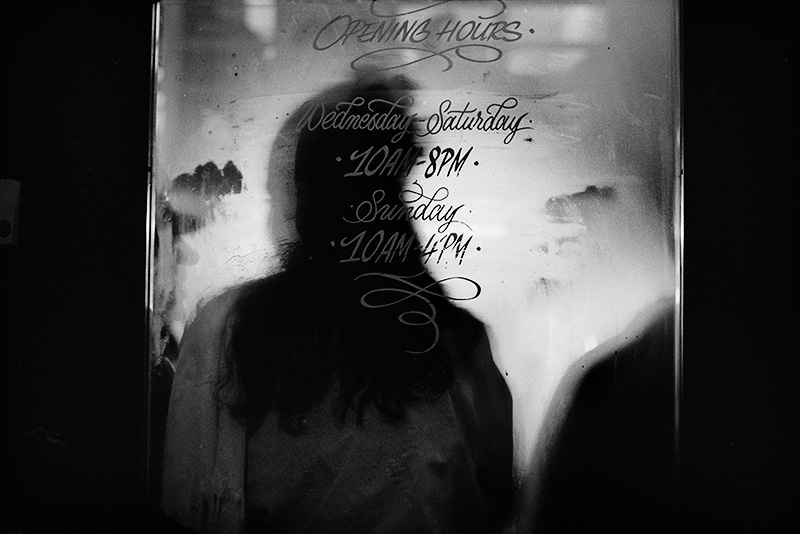 OPENING HOURS
Wednesday-Saturday
10AM-8PM
Sunday
10AM-4PM